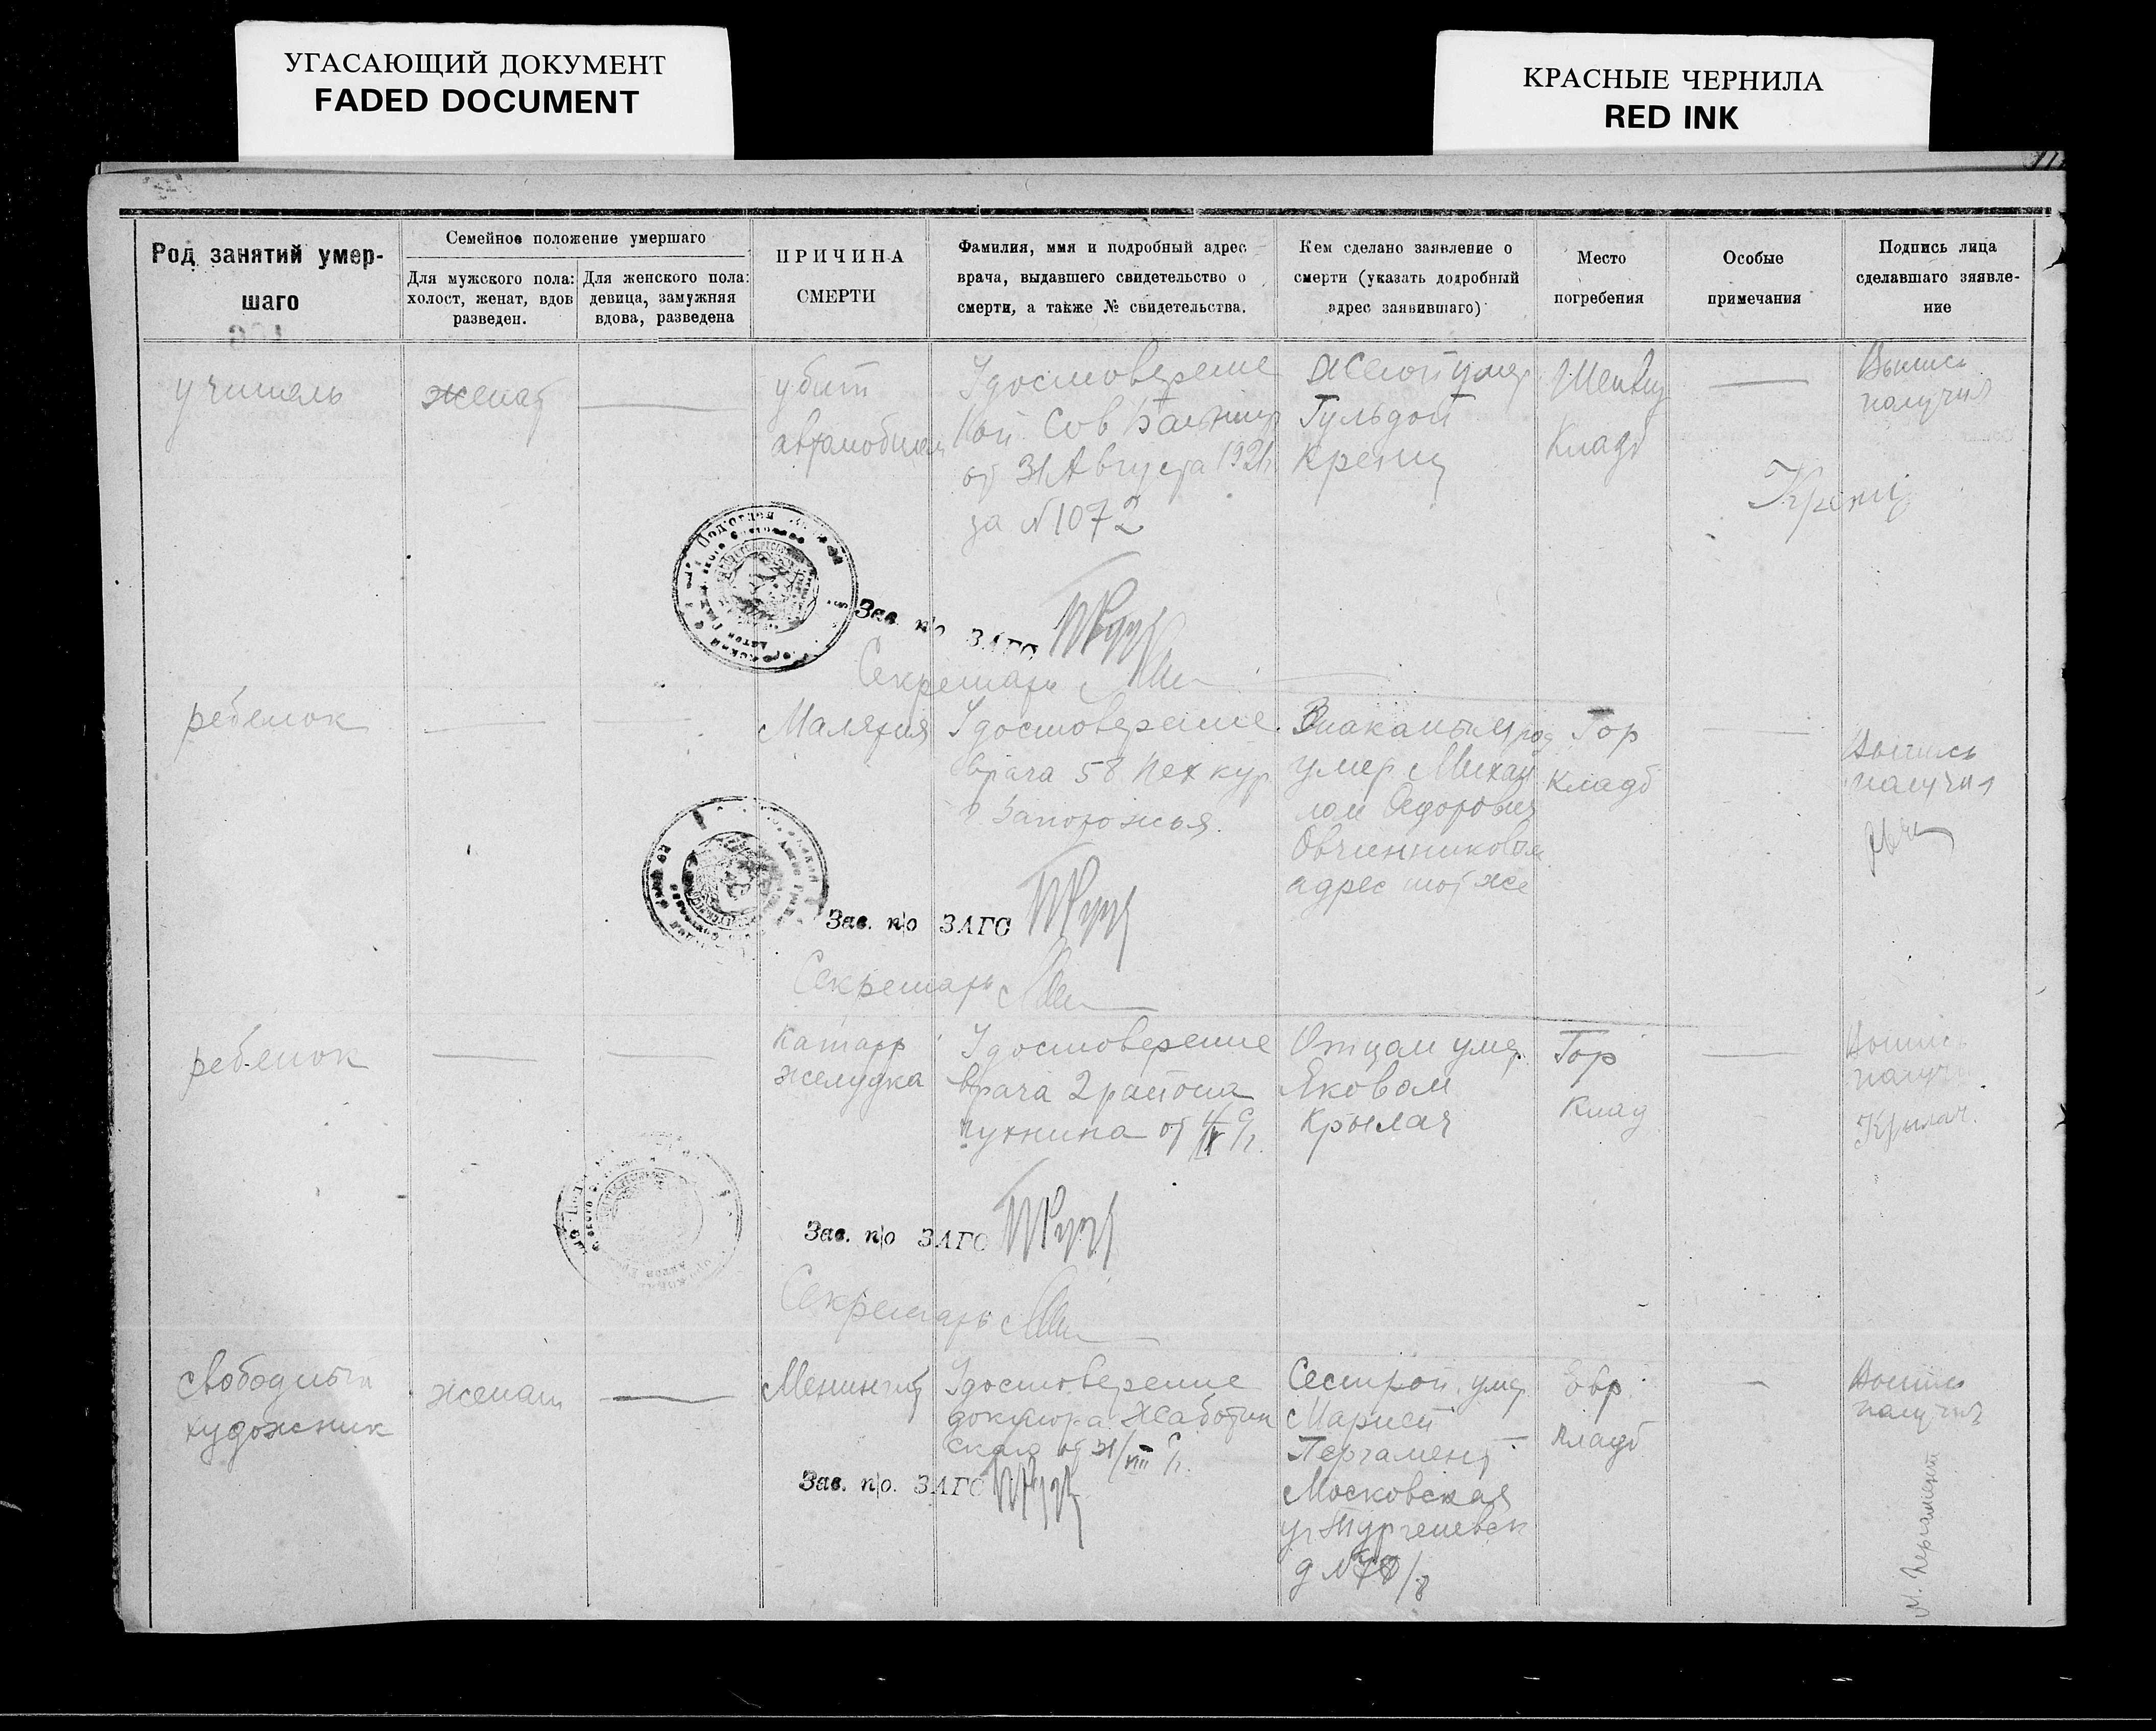 УГАСАЮЩИЙ ДОКУМЕНТ
FADED DOCUMENT
КРАСНЫЕ ЧЕРНИЛА
RED INK
Род занятий умер-
шаго
Семейное положение умершаго
Для мужского пола:
холост, женат, вдов
разведен.
Для женского пола:
девица, замужняя
вдова, разведена
ПРИЧИНА
СМЕРТИ
Фамилия, ммя и подробный адрес
врача, выдавшего свидетельство о
смерти, а также № свидетельства.
Кем сделано заявление о
смерти (указать додробный
адрес заявившаго)
Место
погребения
Особые
примечания
Подпись лица
сделавшаго зяявле-
ние
учитель
женат
убит
автомобилем
Удостоверение
от 31 Августа 1921
за № 1072
Женой умер
Гульдой
Кренц
Кладб
Выпись
получил
Кренц
Зав. п/о ЗАГС
Секретарь
ребенок
Малярия
Удостоверение
врача 58 Пех кур
г. Запорожья.
умер Михаи
лом
Овчинниковым
адрес тот же
Гор
Кладб
Выпись
получил
Зав. п/о ЗАГС
Секретарь
ребенок
Катарр
желудка
Удостоверение
врача 2 района
от
Отцом умер
Яковом
Крылач
Гор
Клад
Выпись
Крылач.
Зав. п/о ЗАГС
Секретарь
свободный
художник
женат
Менингит
Удостоверение
доктора Жаботин
ского от 31/VIII
Сестрой умер
Марией
Пергамент
Московская
ул Тургеневск
д №
Евр.
кладб
Выпись
получил
М. Пергамент
Зав. п/о. ЗАГС